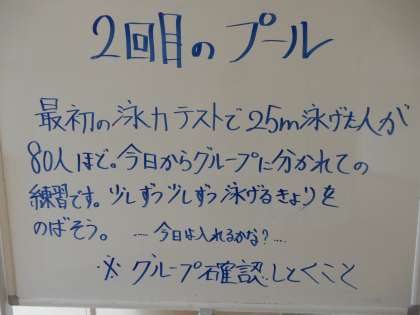 2回目のプール
最初の泳力テストで25m泳げた人が
80人ほど。今日からグループに分かれての
練習です。少しずつ少しずつ泳げるきょりを
のばそう。 ……今日は入れるかな?……
※ グループ確認しとくこと